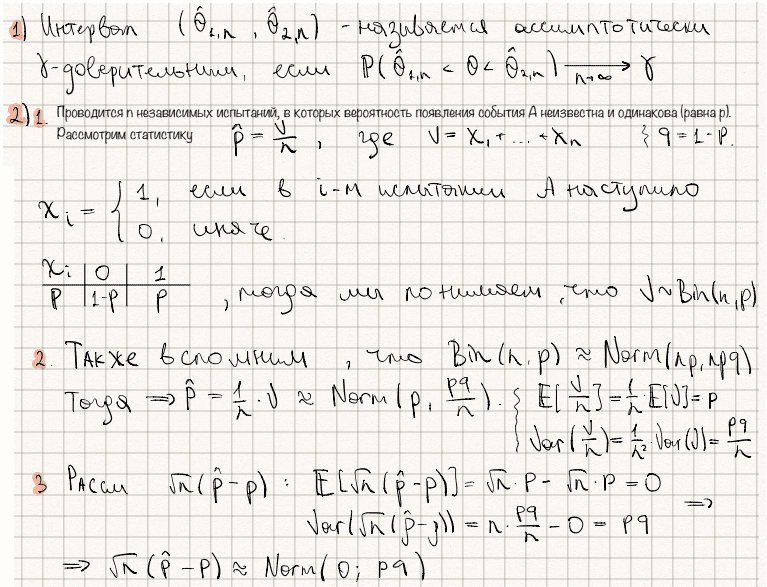 1) Интервал (θ̂₁,ₙ , θ̂₂,ₙ) - называется ассимптотически
γ-доверительным, если P(θ̂₁,ₙ < θ < θ̂₂,ₙ) ⟶ₙ→∞ γ
2) 1. Проводится n независимых испытаний, в которых вероятность появления события A неизвестна и одинакова (равна p).
Рассмотрим статистику p̂ = ν/n , где ν = X₁ + ... + Xₙ } q = 1-P.
Xᵢ = { 1, если в i-м испытании A наступило
0, иначе.
Xᵢ | 0 | 1
P | 1-P | P , тогда мы понимаем, что ν ~ Bin(n,p)
2. Также вспомним, что Bin(n,p) ≈ Norm(np, npq)
Тогда ⇒ p̂ = 1/n · ν ≈ Norm(p, pq/n). { E[ν/n] = 1/n · E[ν] = p
Var(ν/n) = 1/n² · Var(ν) = pq/n
3 Рассм √n(p̂ - p) : E[√n(p̂ - p)] = √n · p - √n · p = 0
Var(√n(p̂ - p)) = n · pq/n - 0 = pq ⇒
⇒ √n(p̂ - p) ≈ Norm(0; pq)